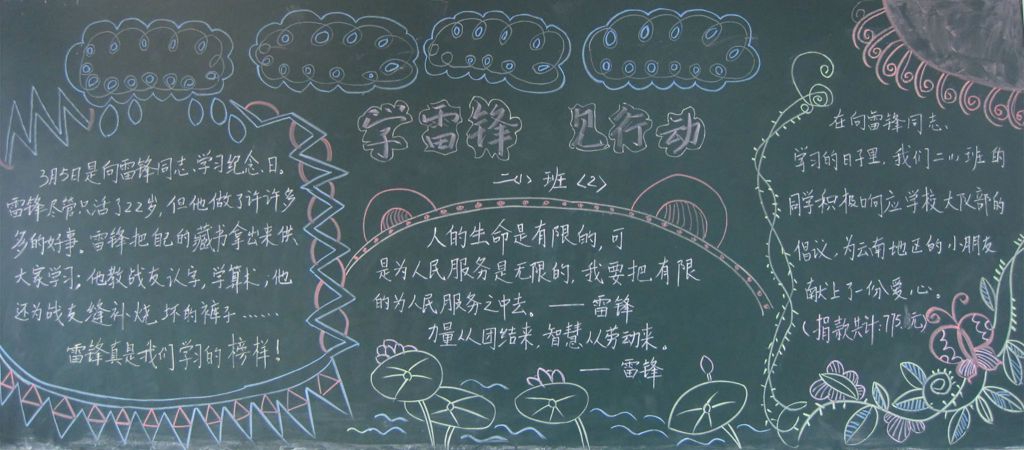 学雷锋 见行动
二(1)班<2>
3月5日是向雷锋同志学习纪念日。
雷锋尽管只活了22岁,但他做了许许多
多的好事。雷锋把自己的藏书拿出来供
大家学习;他教战友认字,学算术;他
还为战友缝补烧坏的裤子……
雷锋真是我们学习的榜样!
人的生命是有限的,可
是为人民服务是无限的,我要把有限
的为人民服务之中去。——雷锋
力量从团结来,智慧从劳动来。
——雷锋
在向雷锋同志、
学习的日子里,我们二(1)班的
同学积极响应学校大队部的
倡议,为云南地区的小朋友
献上了一份爱心。
(捐款共计:元)